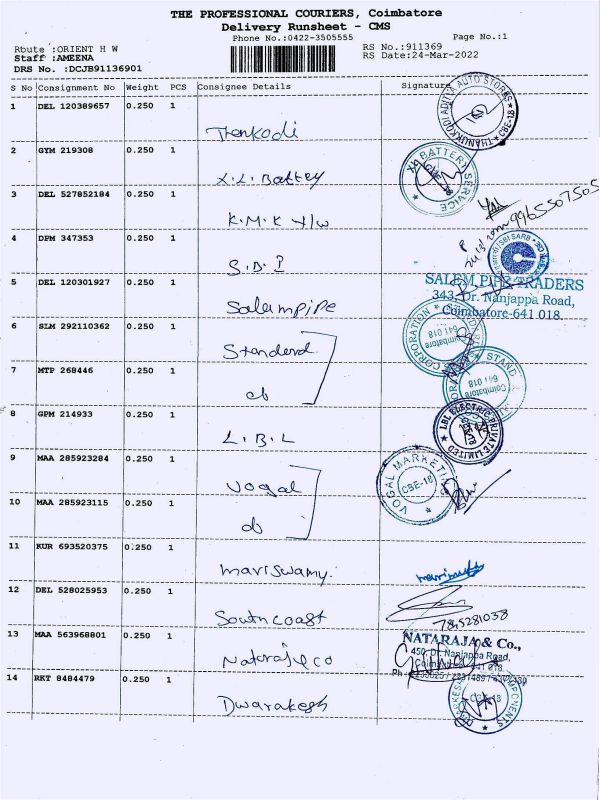 THE PROFESSIONAL COURIERS, Coimbatore
Delivery Runsheet - CMS
Phone No.:0422-3505555
Page No.:1
Route :ORIENT H W
Staff :AMEENA
DRS No. :DCJB91136901
RS No.:911369
RS Date:24-Mar-2022
S No Consignment No Weight PCS Consignee Details Signature
1 DEL 120389657 0.250 1 Thenkodi
THANUKKODI ADITYA AUTO STORES CBE-18
2 GYM 219308 0.250 1 X.L. Battey
XL BATTERY SERVICE
3 DEL 527852184 0.250 1 K.M.K H/W
9965507505
4 DPM 347353 0.250 1 S.B.I
5 DEL 120301927 0.250 1 Salampipe
SALEM PIPE TRADERS
343, Dr. Nanjappa Road,
Coimbatore-641 018.
6 SLM 292110362 0.250 1 Standend
CORPORATION STANDARD Coimbatore 641 018
7 MTP 268446 0.250 1 do
STAND Coimbatore 641 018
8 GPM 214933 0.250 1 L.B.L
LBL ELECTRIC PRIVATE LIMITED
9 MAA 285923284 0.250 1 Vogal
VOGAL MARKETING CBE-18
10 MAA 285923115 0.250 1 do
11 KUR 693520375 0.250 1 mariswamy.
12 DEL 528025953 0.250 1 Southcoast
13 MAA 563968801 0.250 1 Nataraj & co
NATARAJA & Co.,
450, Dr. Nanjappa Road,
Coimbatore-641 018.
14 RKT 8484479 0.250 1 Dwarakesh
COMPONENTS